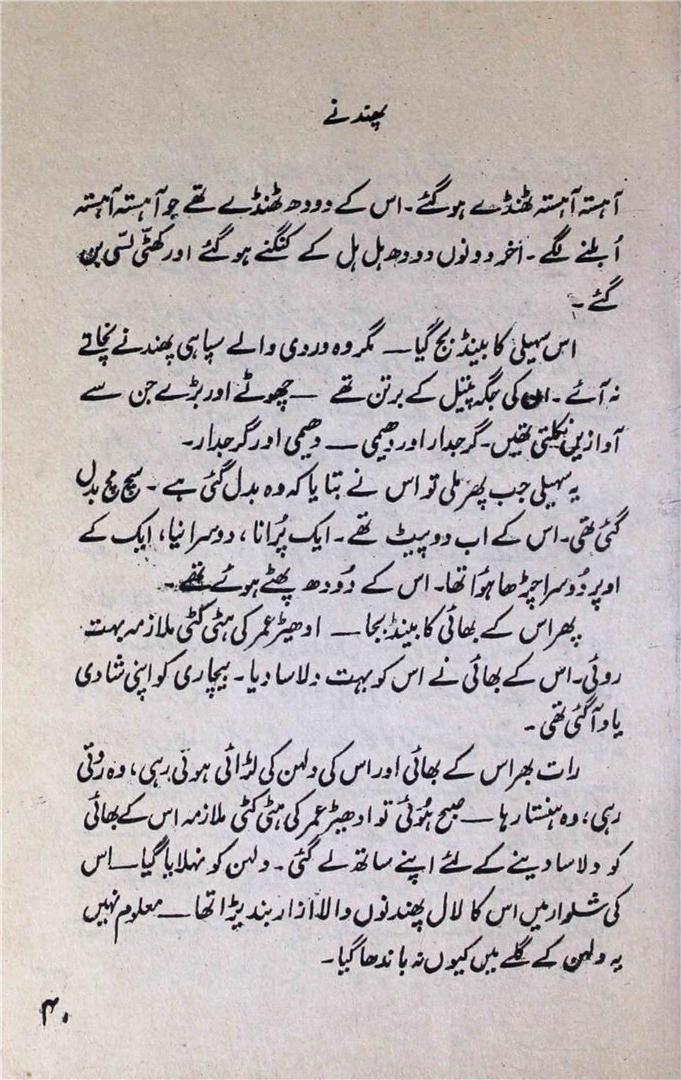 پھندنے
آہستہ آہستہ ٹھنڈے ہو گئے۔ اس کے دودھ ٹھنڈے تھے جو آہستہ آہستہ
اُبلنے لگے۔ آخر دونوں دودھ ہل ہل کے کنگنے ہو گئے اور کھٹّی لسّی بن
گئے۔
اس سہیلی کا بینڈ بج گیا — مگر وہ وردی والے سپاہی پھندنے نچاتے
نہ آئے۔ ان کی جگہ پیتل کے برتن تھے — چھوٹے اور بڑے جن سے
آوازیں نکلتی تھیں۔ گرجدار اور دھیمی — دھیمی اور گرجدار۔
یہ سہیلی جب پھر ملی تو اس نے بتایا کہ وہ بدل گئی ہے۔ سچ مچ بدل
گئی تھی۔ اس کے اب دو پیٹ تھے۔ ایک پُرانا، دوسرا نیا، ایک کے
اوپر دُوسرا چڑھا ہُوا تھا۔ اس کے دُودھ پھٹے ہوئے تھے۔
پھر اس کے بھائی کا بینڈ بجا — ادھیڑ عمر کی ہٹی کٹی ملازمہ بہت
روئی۔ اس کے بھائی نے اس کو بہت دلاسا دیا۔ بیچاری کو اپنی شادی
یاد آ گئی تھی۔
رات بھر اس کے بھائی اور اس کی دلہن کی لڑائی ہوتی رہی، وہ روتی
رہی، وہ ہنستا رہا — صبح ہُوئی تو ادھیڑ عمر کی ہٹی کٹی ملازمہ اس کے بھائی
کو دلاسا دینے کے لئے اپنے ساتھ لے گئی۔ دلہن کو نہلایا گیا — اس
کی شلوار میں اس کا لال پھندنوں والا ازار بند پڑا تھا — معلوم نہیں
یہ دلہن کے گلے میں کیوں نہ باندھا گیا۔
۴۰